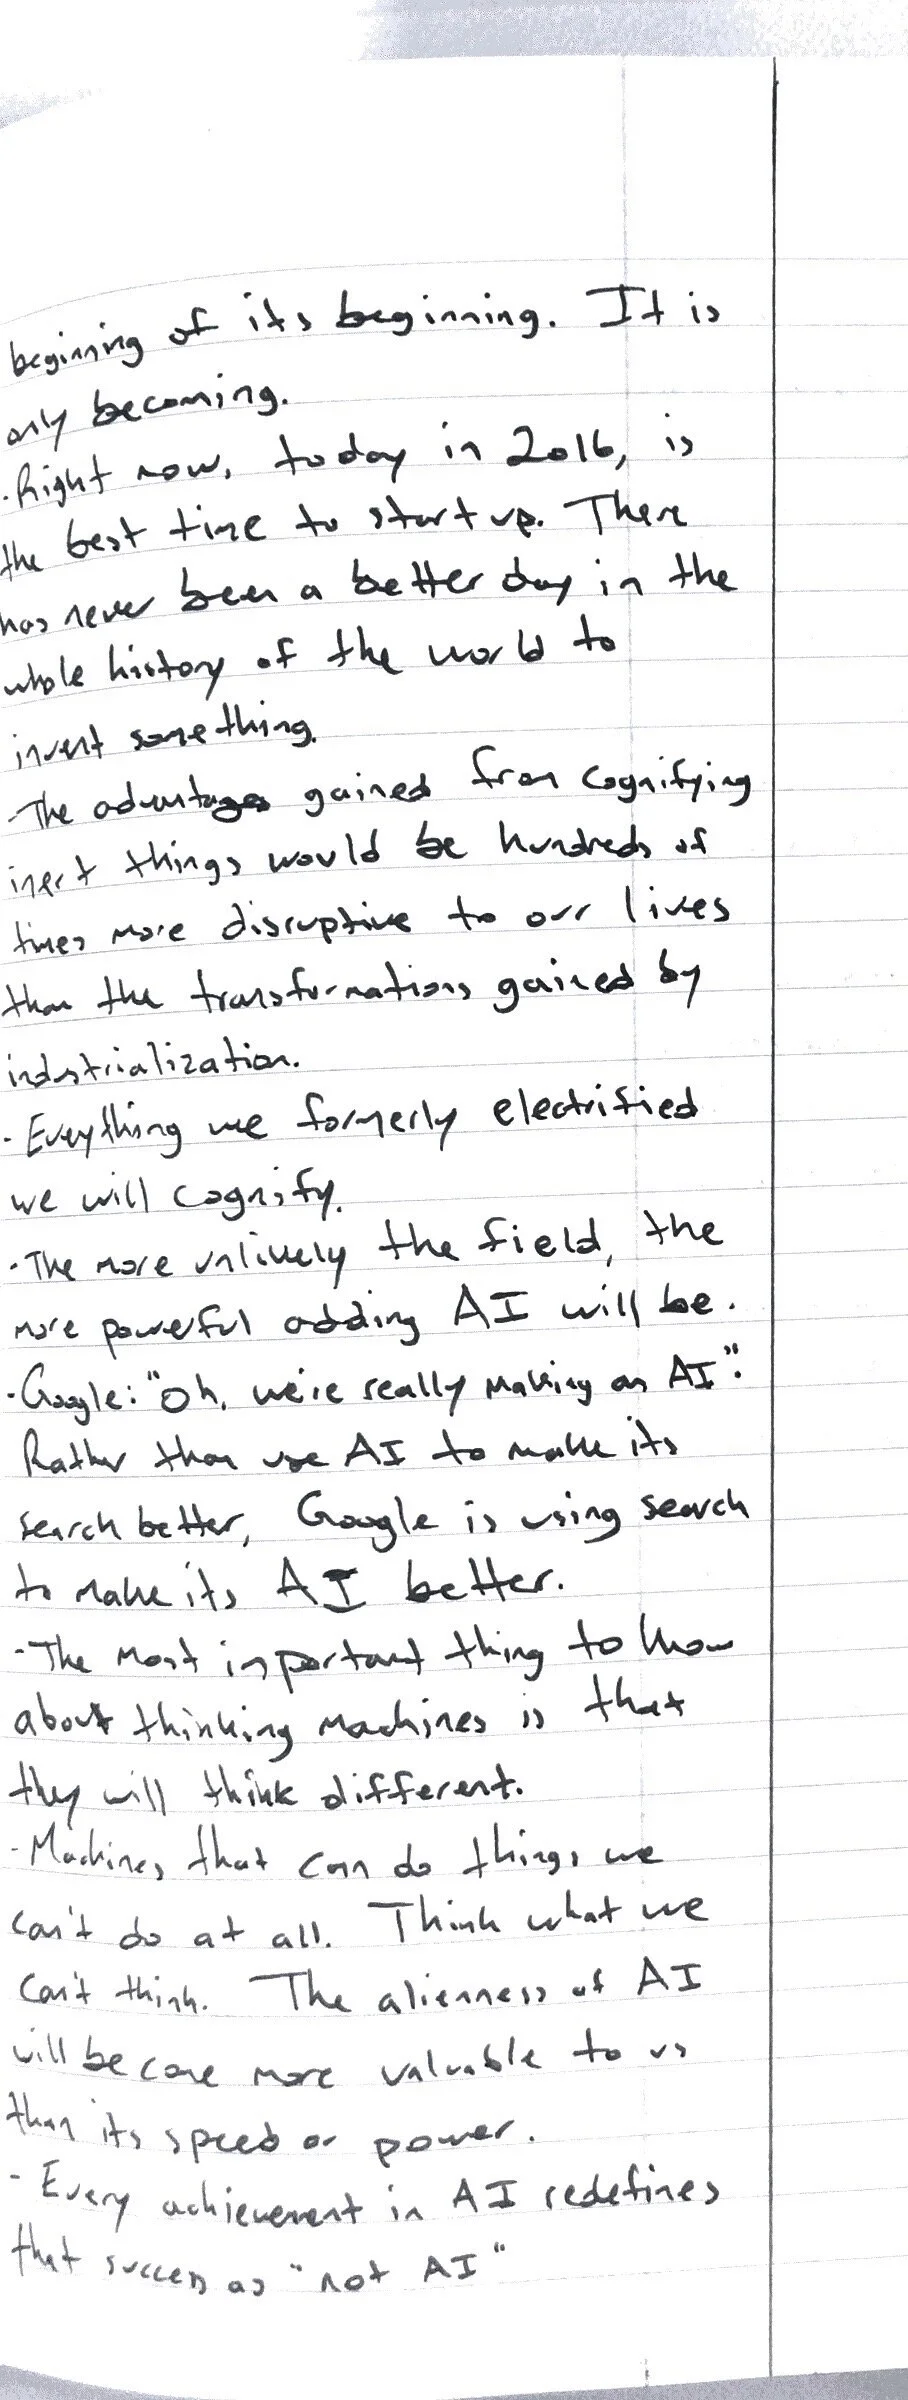 beginning of its beginning. It is
only becoming.
·Right now, today in 2016, is
the best time to start up. There
has never been a better day in the
whole history of the world to
invent something.
·The advantages gained from cognifying
inert things would be hundreds of
times more disruptive to our lives
than the transformations gained by
industrialization.
·Everything we formerly electrified
we will cognify.
·The more unlikely the field, the
more powerful adding AI will be.
·Google: "Oh, we're really making an AI".
Rather than use AI to make its
search better, Google is using search
to make its AI better.
-The most important thing to know
about thinking machines is that
they will think different.
-Machines that can do things we
can't do at all. Think what we
can't think. The alienness of AI
will become more valuable to us
than its speed or power.
- Every achievement in AI redefines
that success as "not AI"